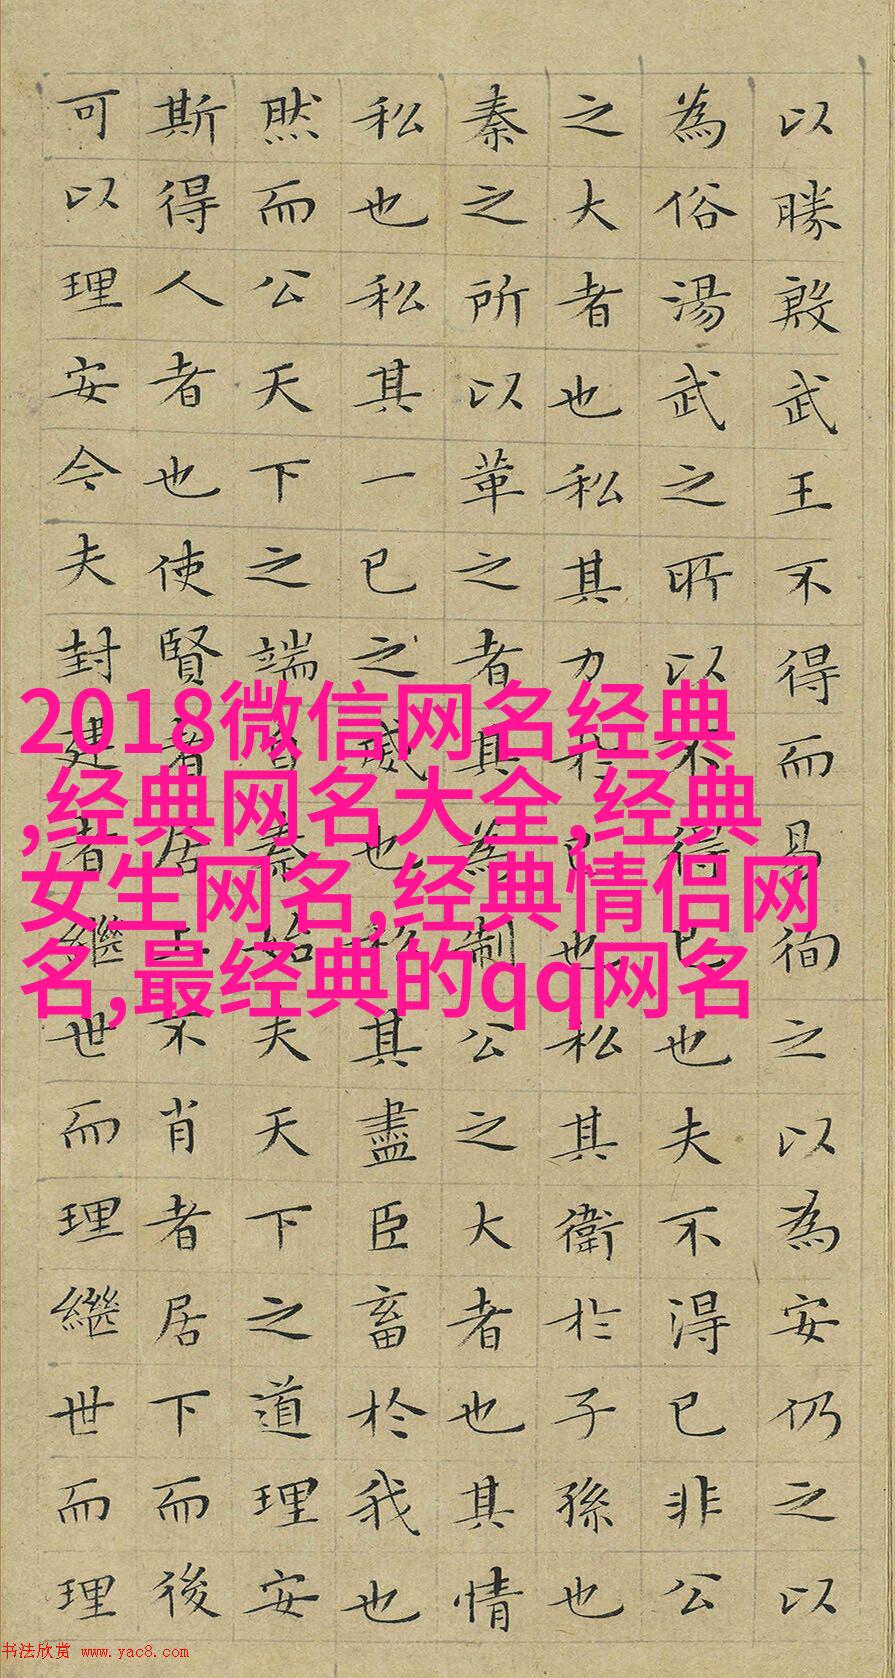 以勝殷武王不得而易徇之以為安仍之以
為俗湯武之所以不得已也夫不得已非公
之大者也私其力於己也私其衛於子孫也
秦之所以革之者其為制公之大者也其情
私也私其一己之威也私其盡臣畜於我也
然而公天下之端自秦始夫天下之道理安
斯得人者也使賢者居上不肖者居下而後
可以理安今夫封建者繼世而理繼世而理
2018微信网名经典
,经典网名大全,经典
女生网名,经典情侣网
名,最经典的qq网名
书法欣赏 www.yac8.com